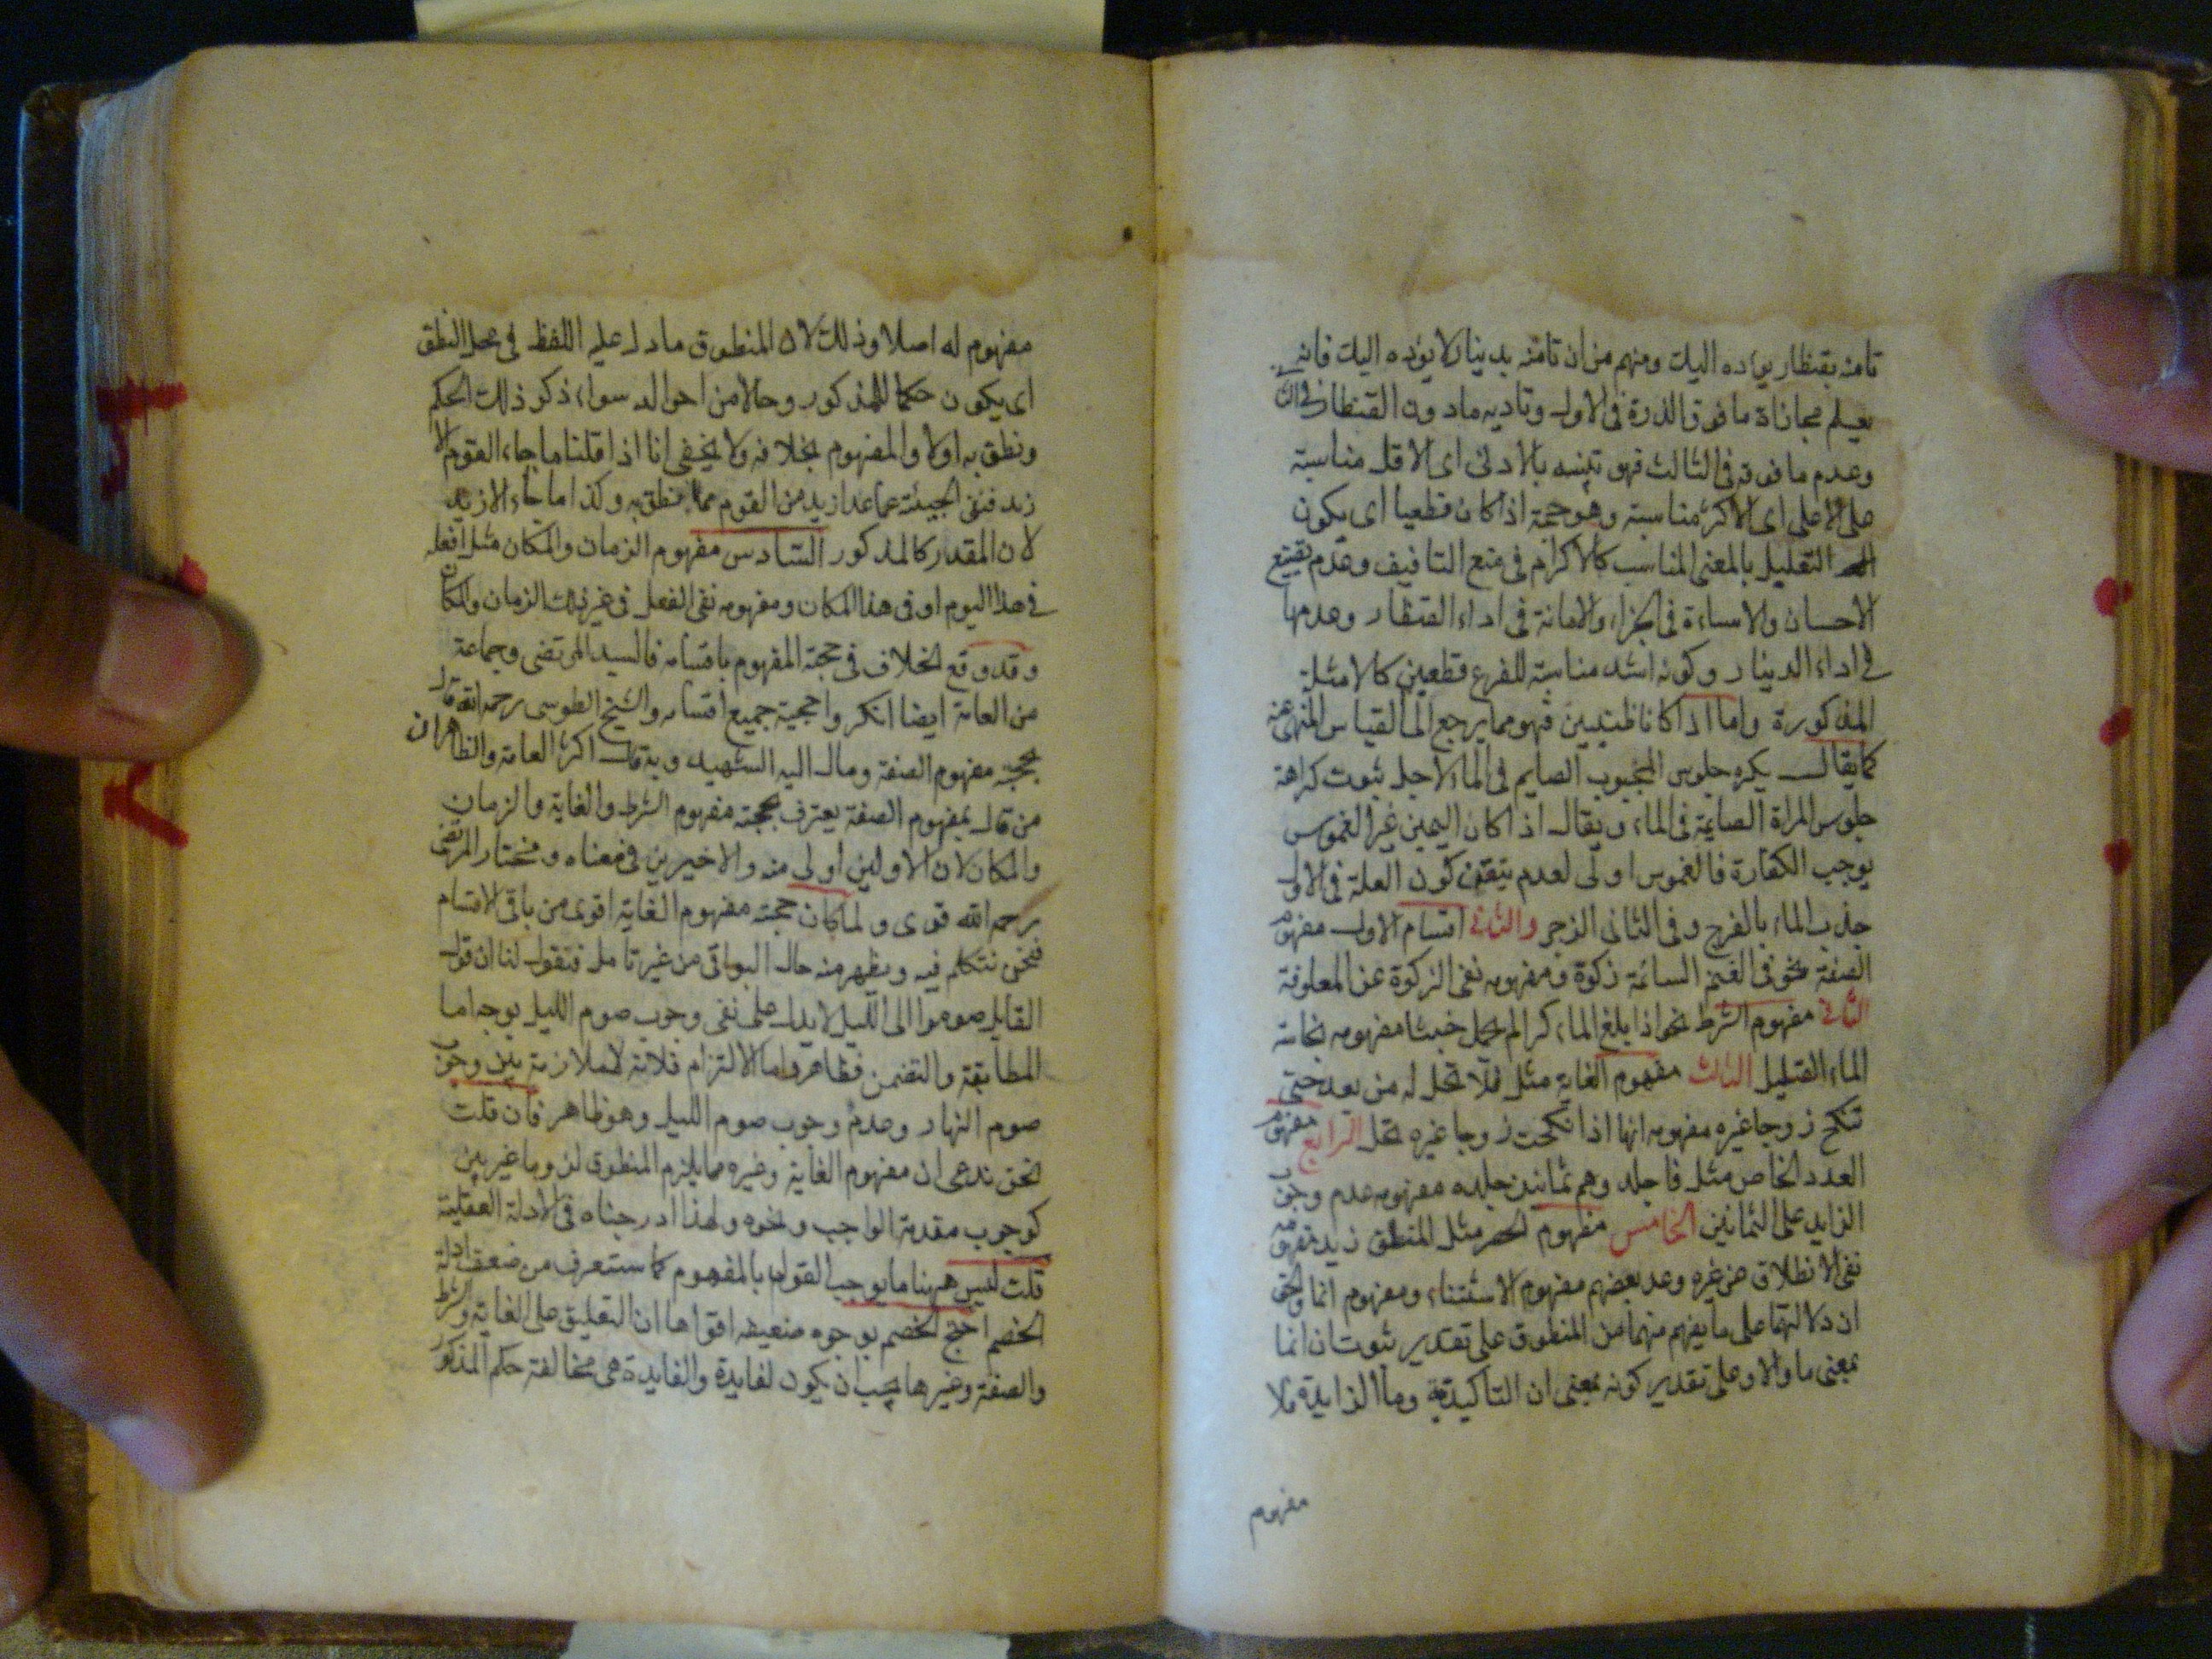 تامنه بقنطار يؤده اليك ومنهم من ان تامنه بدينار لا يؤده اليك فانه
يعلم مجازاة ما فوق الذرة في الاول وتاديه ما دون القنطار في الثاني
وعدم ما فوقه في الثالث فهو تنبيه بالادنى اى الاقل مناسبة
على الاعلى اى الاكثر مناسبة وهو حجة اذا كان قطعيا اى يكون
التعليل بالمعنى المناسب كالاكرام في منع التافيف وعدم تضييع
الاحسان والاساءة في الجزاء والامانة في اداء القنطار وعدمها
في اداء الدينار وكونه اشد مناسبة للفرع قطعين كالامثلة
المذكورة واما اذا كانا ظنيين فهو مما يرجع الى القياس المنهى عنه
كما يقال يكره جلوس المجبوب الصايم في الماء لاجل ثبوت كراهة
جلوس المراة الصايمة في الماء ويقال اذا كان اليمين غير الغموس
يوجب الكفارة فالغموس اولى لعدم تيقن كون العلة في الاول
جذب الماء بالفرج وفى الثانى الزجر والثاني اقسام الاول مفهوم
الصفة نحو في الغنم السائمة زكوة ومفهومه نفى الزكوة عن المعلوفة
الثاني مفهوم الشرط نحو اذا بلغ الماء كرا لم يحمل خبثا مفهومه نجاسة
الماء القليل الثالث مفهوم الغاية مثل فلا تحل له من بعد حتى
تنكح زوجا غيره مفهومه انها اذا نكحت زوجا غيره تحل الرابع مفهوم
العدد الخاص مثل فاجلدوهم ثمانين جلده مفهومه عدم وجوب
الزايد على الثمانين الخامس مفهوم الحصر مثل المنطلق زيد مفهومه
نفى الانطلاق عن غيره وعد بعضهم مفهوم الاستثناء ومفهوم انما والحق
ان دلالتهما على ما يفهم منهما من المنطوق على تقدير ثبوت ان انما
بمعنى ما والا وعلى تقدير كونه بمعنى ان التاكيدية وما الزايدة فلا
مفهوم
مفهوم له اصلا وذلك لان المنطوق ما دل عليه اللفظ في محل النطق
اى يكون حكما للمذكور وحالا من احواله سواء ذكر ذلك الحكم
ونطق به اولا والمفهوم بخلافه ولا يخفى انا اذا قلنا ما جاء القوم الا
زيد فنفى الجيئة عما عدا زيد من القوم مما نطق به وكذا ما جاء الا زيد
لان المقدر كالمذكور السادس مفهوم الزمان والمكان مثل افعله
في هذا اليوم او في هذا المكان ومفهومه نفى الفعل في غير ذلك الزمان والمكان
وقد وقع الخلاف في حجية المفهوم باقسامه فالسيد المرتضى وجماعة
من العامة ايضا انكروا حجية جميع اقسامه والشيخ الطوسى رحمه الله قال
بحجية مفهوم الصفة ومال اليه الشهيد وبه قال اكثر العامة والظاهر ان
من قال بمفهوم الصفة يعترف بحجية مفهوم الشرط والغاية والزمان
والمكان لان الاولين اولى منه والاخيرين في معناه ومختار المرتضى
رحمه الله قوى ولما كان حجية مفهوم الغاية اقوى من باقى الاقسام
فنحن نتكلم فيه ويظهر منه حال البواقى من غير تامل فنقول لنا ان قول
القايل صوموا الى الليل لا يدل على نفى وجوب صوم الليل بوجه اما
المطابقة والتضمن فظاهر واما الالتزام فلانه لا ملازمة بين وجوب
صوم النهار وعدم وجوب صوم الليل وهو ظاهر فان قلت
نحن ندعى ان مفهوم الغاية وغيره مما يلزم المنطوق لزوما غير بين
كوجوب مقدمة الواجب ونحوه ولهذا ادرجناه في الادلة العقلية
قلت ليس ههنا ما يوجب القول بالمفهوم كما ستعرف من ضعف ادلة
الخصم احتج الخصم بوجوه ضعيفة اقواها ان التعليق على الغاية والشرط
والصفة وغيرها يجب ان يكون لفايدة والفايدة هى مخالفة حكم المذكور